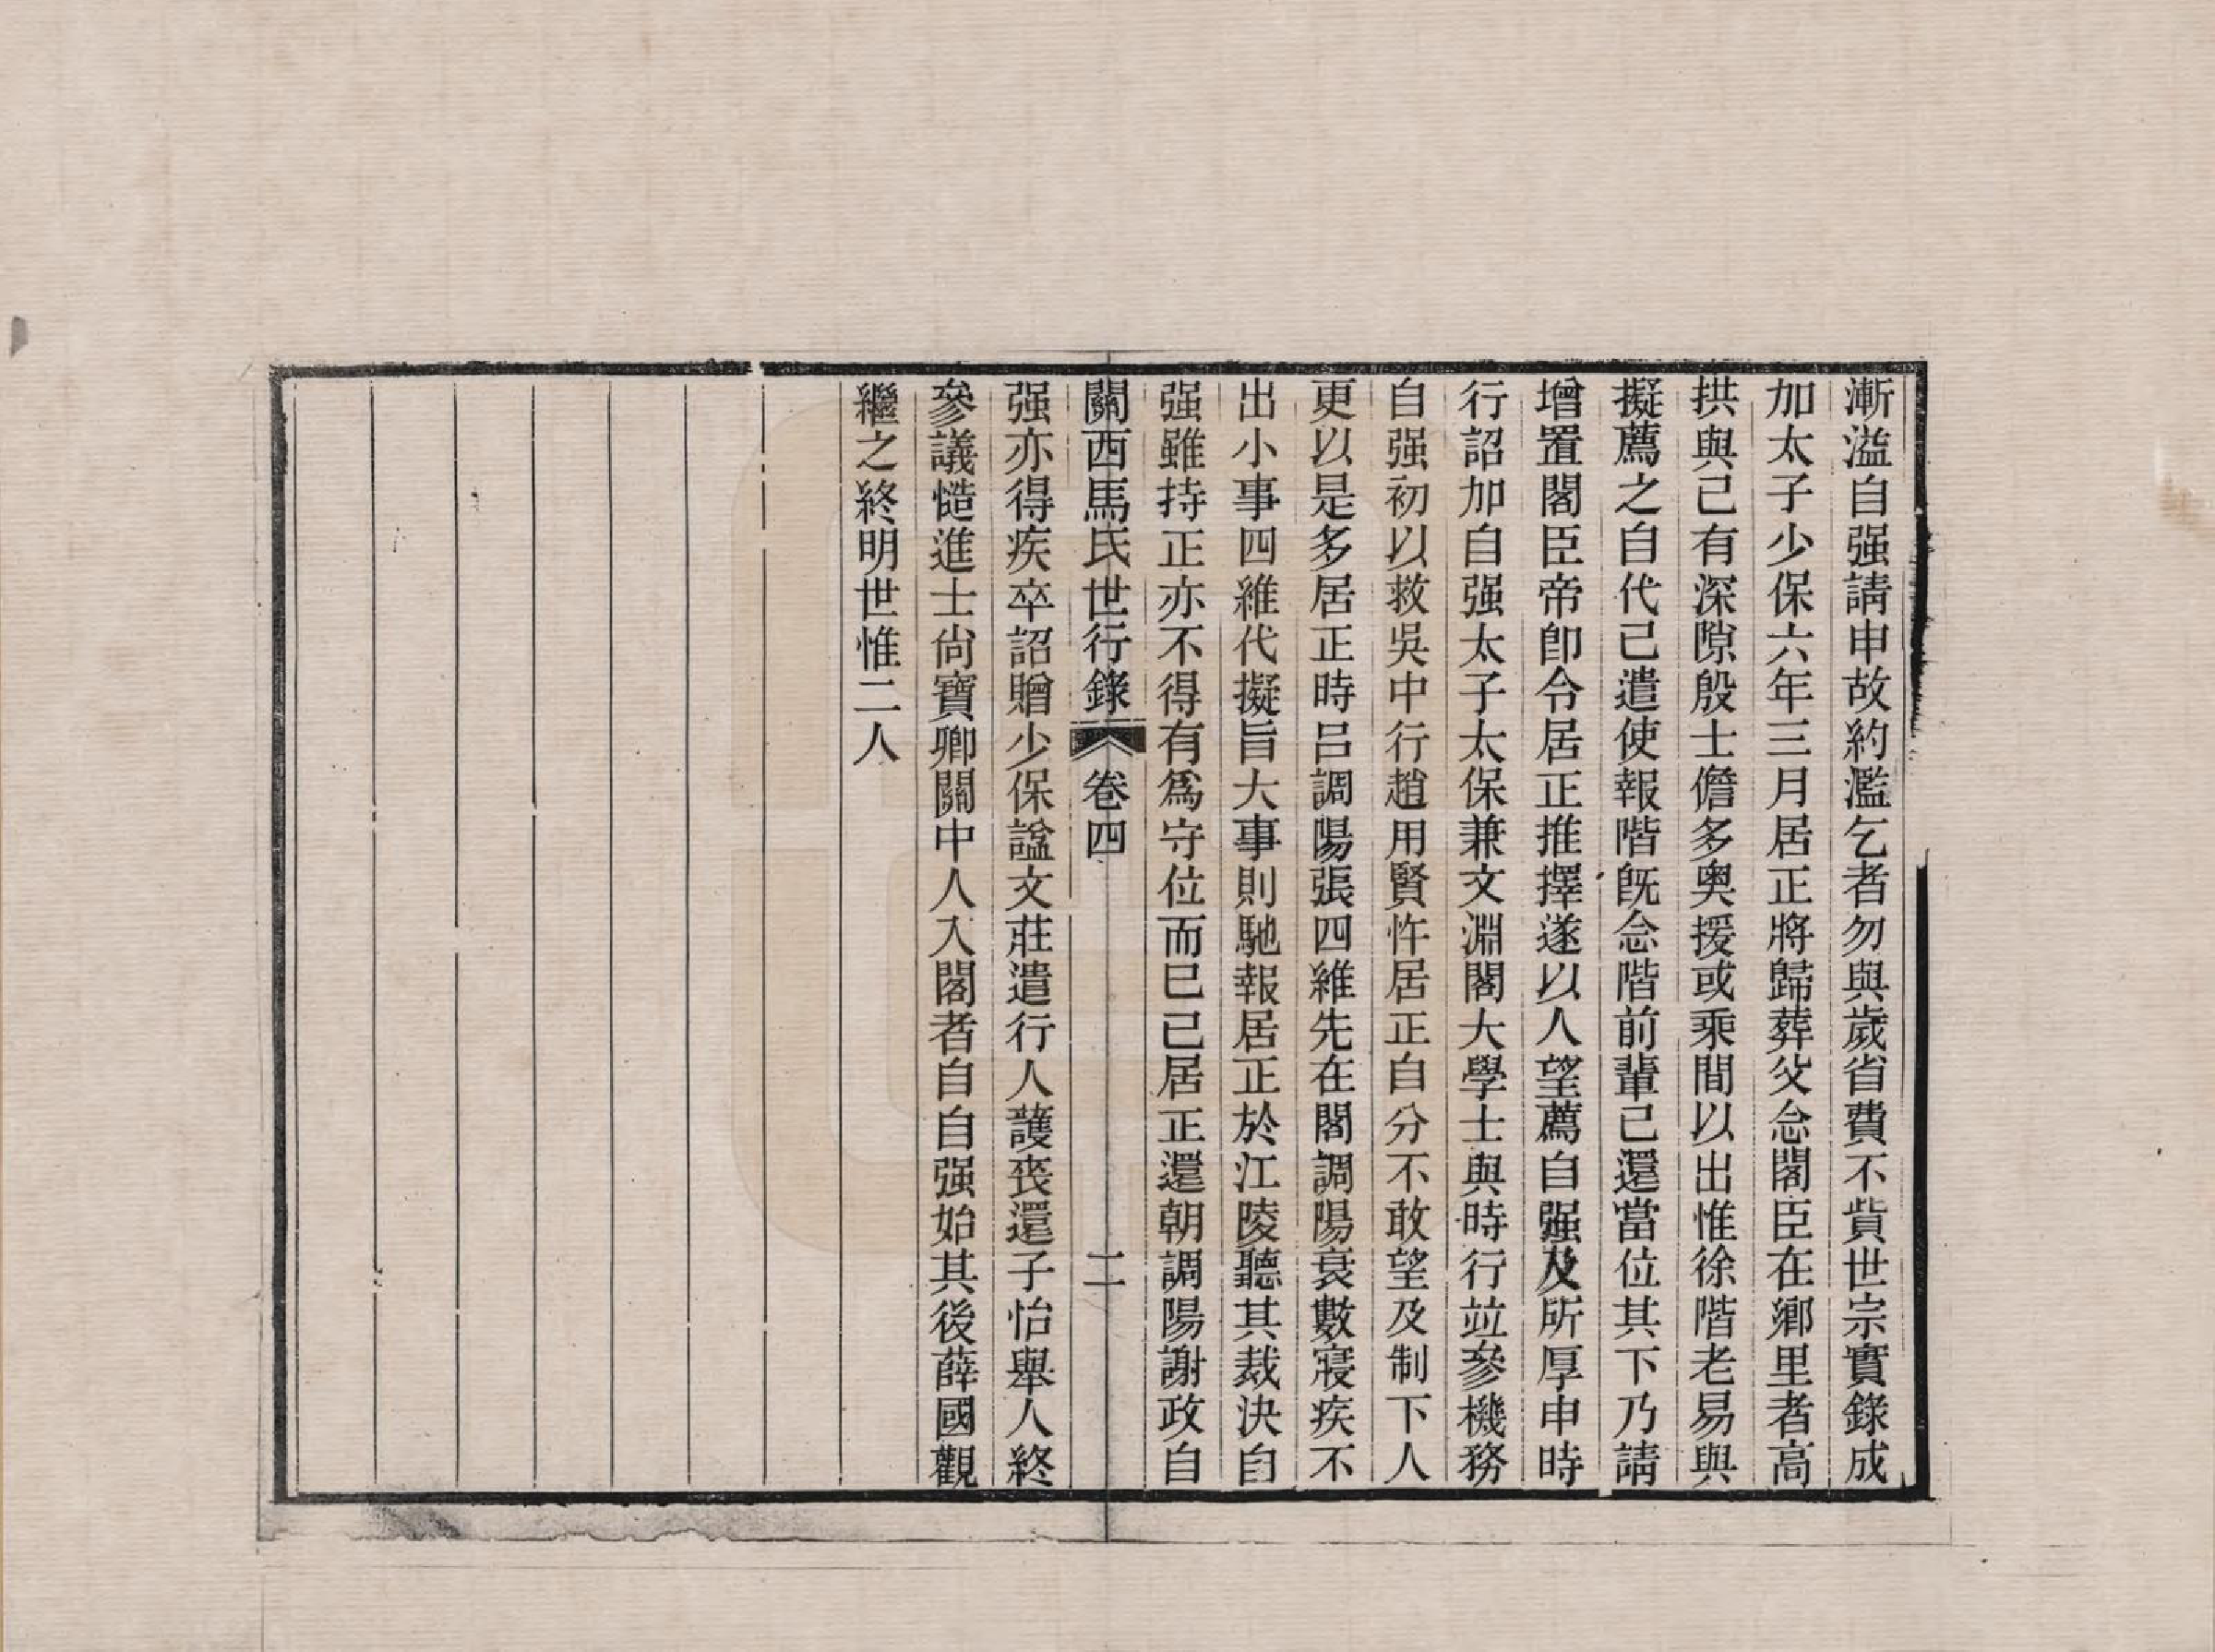 漸溢自强請申故約濫乞者勿與歲省費不貲世宗實錄成
加太子少保六年三月居正將歸葬父念閣臣在鄉里者高
拱與己有深隙殷士儋多奧援或乘間以出惟徐階老易與
擬薦之自代己遣使報階既念階前輩己還當位其下乃請
增置閣臣帝卽令居正推擇遂以人望薦自强及所厚申時
行詔加自强太子太保兼文淵閣大學士與時行竝參機務
自强初以救吳中行趙用賢忤居正自分不敢望及制下人
更以是多居正時呂調陽張四維先在閣調陽衰數寢疾不
出小事四維代擬旨大事則馳報居正於江陵聽其裁決自
强雖持正亦不得有爲守位而已已居正還朝調陽謝政自
關西馬氏世行錄 卷四 二
强亦得疾卒詔贈少保謚文莊遣行人護丧還子怡舉人終
參議慥進士尙寶卿關中人入閣者自自强始其後薛國觀
繼之終明世惟二人